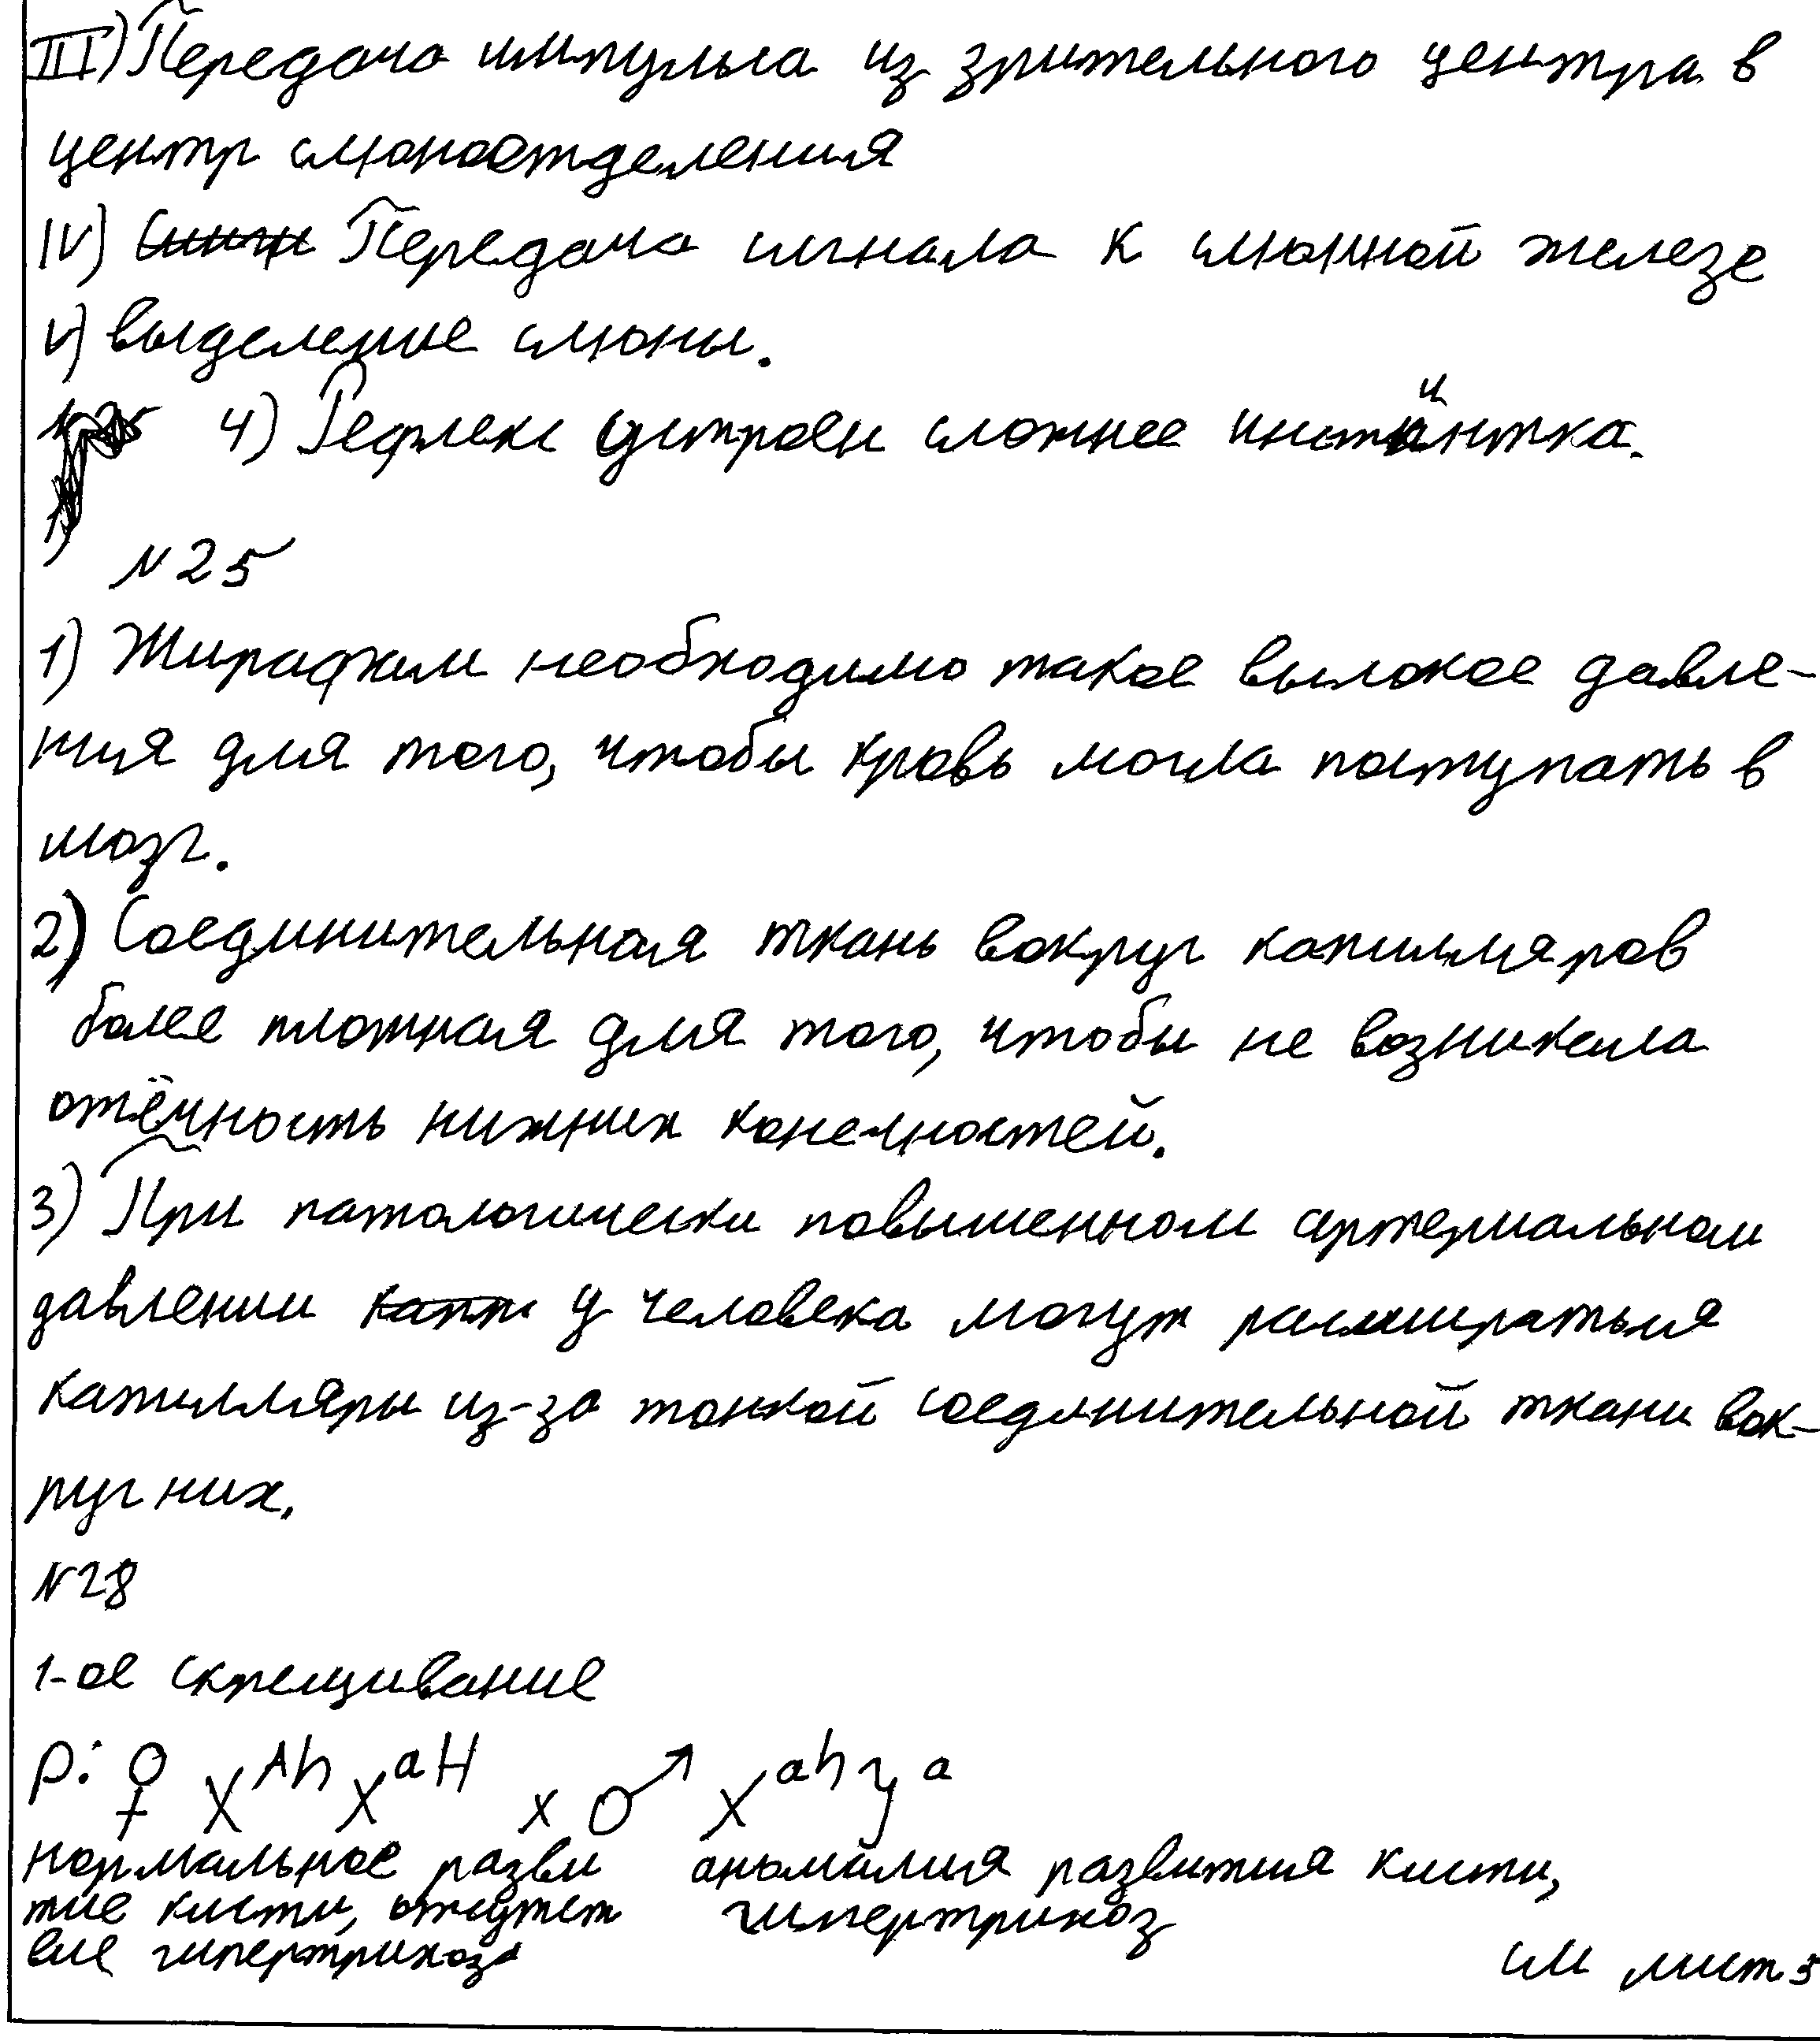 III) Передача импульса из зрительного центра в
центр слюноотделения
IV) Передача сигнала к слюнной железе
V) выделение слюны.
4) Рефлекс устроен сложнее инстинтка.
№25
1) Жирафам необходимо такое высокое давле-
ния для того, чтобы кровь могла поступать в
мозг.
2) Соединительная ткань вокруг капилляров
более плотная для того, чтобы не возникала
отёчность нижних конечностей.
3) При патологически повышенном артериальном
давлении у человека могут расширяться
капилляры из-за тонкой соединительной ткани вок-
руг них.
№28
1-ое скрещивание
P: ♀ X^Ah X^aH x ♂ X^ah Y^a
нормальное разви аномалия развития кисти,
тие кисти, отсутст гипертрихоз
вие гипертрихоза
см лист 5